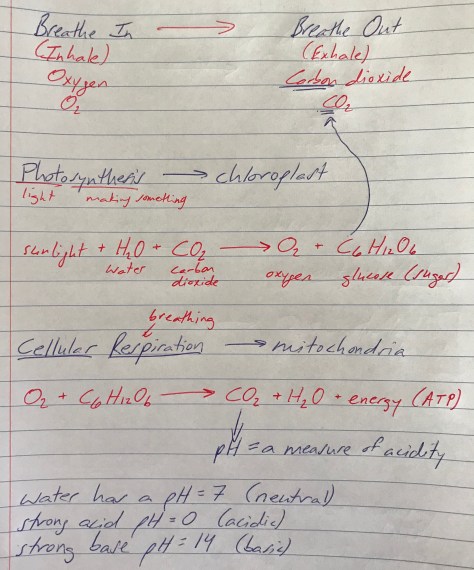 Breathe In → Breathe Out
(Inhale) (Exhale)
Oxygen Carbon dioxide
O₂ CO₂
Photosynthesis → chloroplast
light making something
sunlight + H₂O + CO₂ → O₂ + C₆H₁₂O₆
water carbon dioxide oxygen glucose (sugar)
breathing
Cellular Respiration → mitochondria
O₂ + C₆H₁₂O₆ → CO₂ + H₂O + energy (ATP)
pH = a measure of acidity
water has a pH = 7 (neutral)
strong acid pH = 0 (acidic)
strong base pH = 14 (basic)